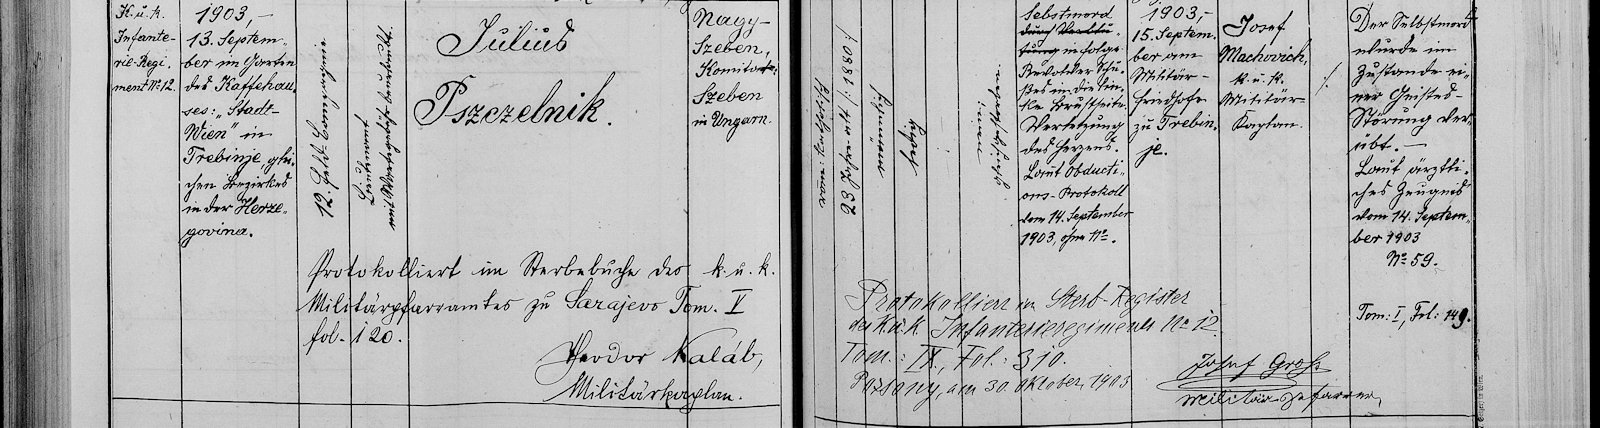 K. u. k.
Infante-
rie-Regi-
ment No 12.
1903,-
13. Septem-
ber im Garten
des Kaffehau-
ses: „Stadt-
Wien" in
Trebinje, glei-
chen Bezirkes
in der Herze-
govina.
12. Feld-Compagnie
Lieutenant
Julius
Pszczelnik.
Nagy-
Szeben,
Komitat:
Szeben
in Ungarn.
23 Jahre alt /: 1880 :/
römisch-katholisch
ledig
Selbstmord
durch
in Folge
Revolver Schu-
ßes in die lin-
ke Brustseite.
Verletzung
des Herzens.
Laut Obducti-
ons-Protokoll
vom 14. September
1903, ohne No.
1903,-
15. Septem-
ber am
Militär-
friedhofe
zu Trebin-
je.
Josef
Machovich,
k. u. k.
Militär-
Kaplan.
/.
Der Selbstmord
wurde im
Zustande ei-
ner Geistes-
Störung ver-
übt. —
Laut ärztli-
ches Zeugnis
vom 14. Septem-
ber 1903
No 59.
Tom: I, Fol: 149.
Protokolliert im Sterbebuche des k. u. k.
Militärpfarramtes zu Sarajevo Tom. V
fol. 120.
Theodor Kaláb,
Militärkaplan.
Protokolliert im Sterb-Register
des k.u.k. Infanterieregiments No 12
Tom.: IX., Fol.: 310.
Pozsony, am 30. Oktober 1903
Josef Groß
Militär-Pfarrer